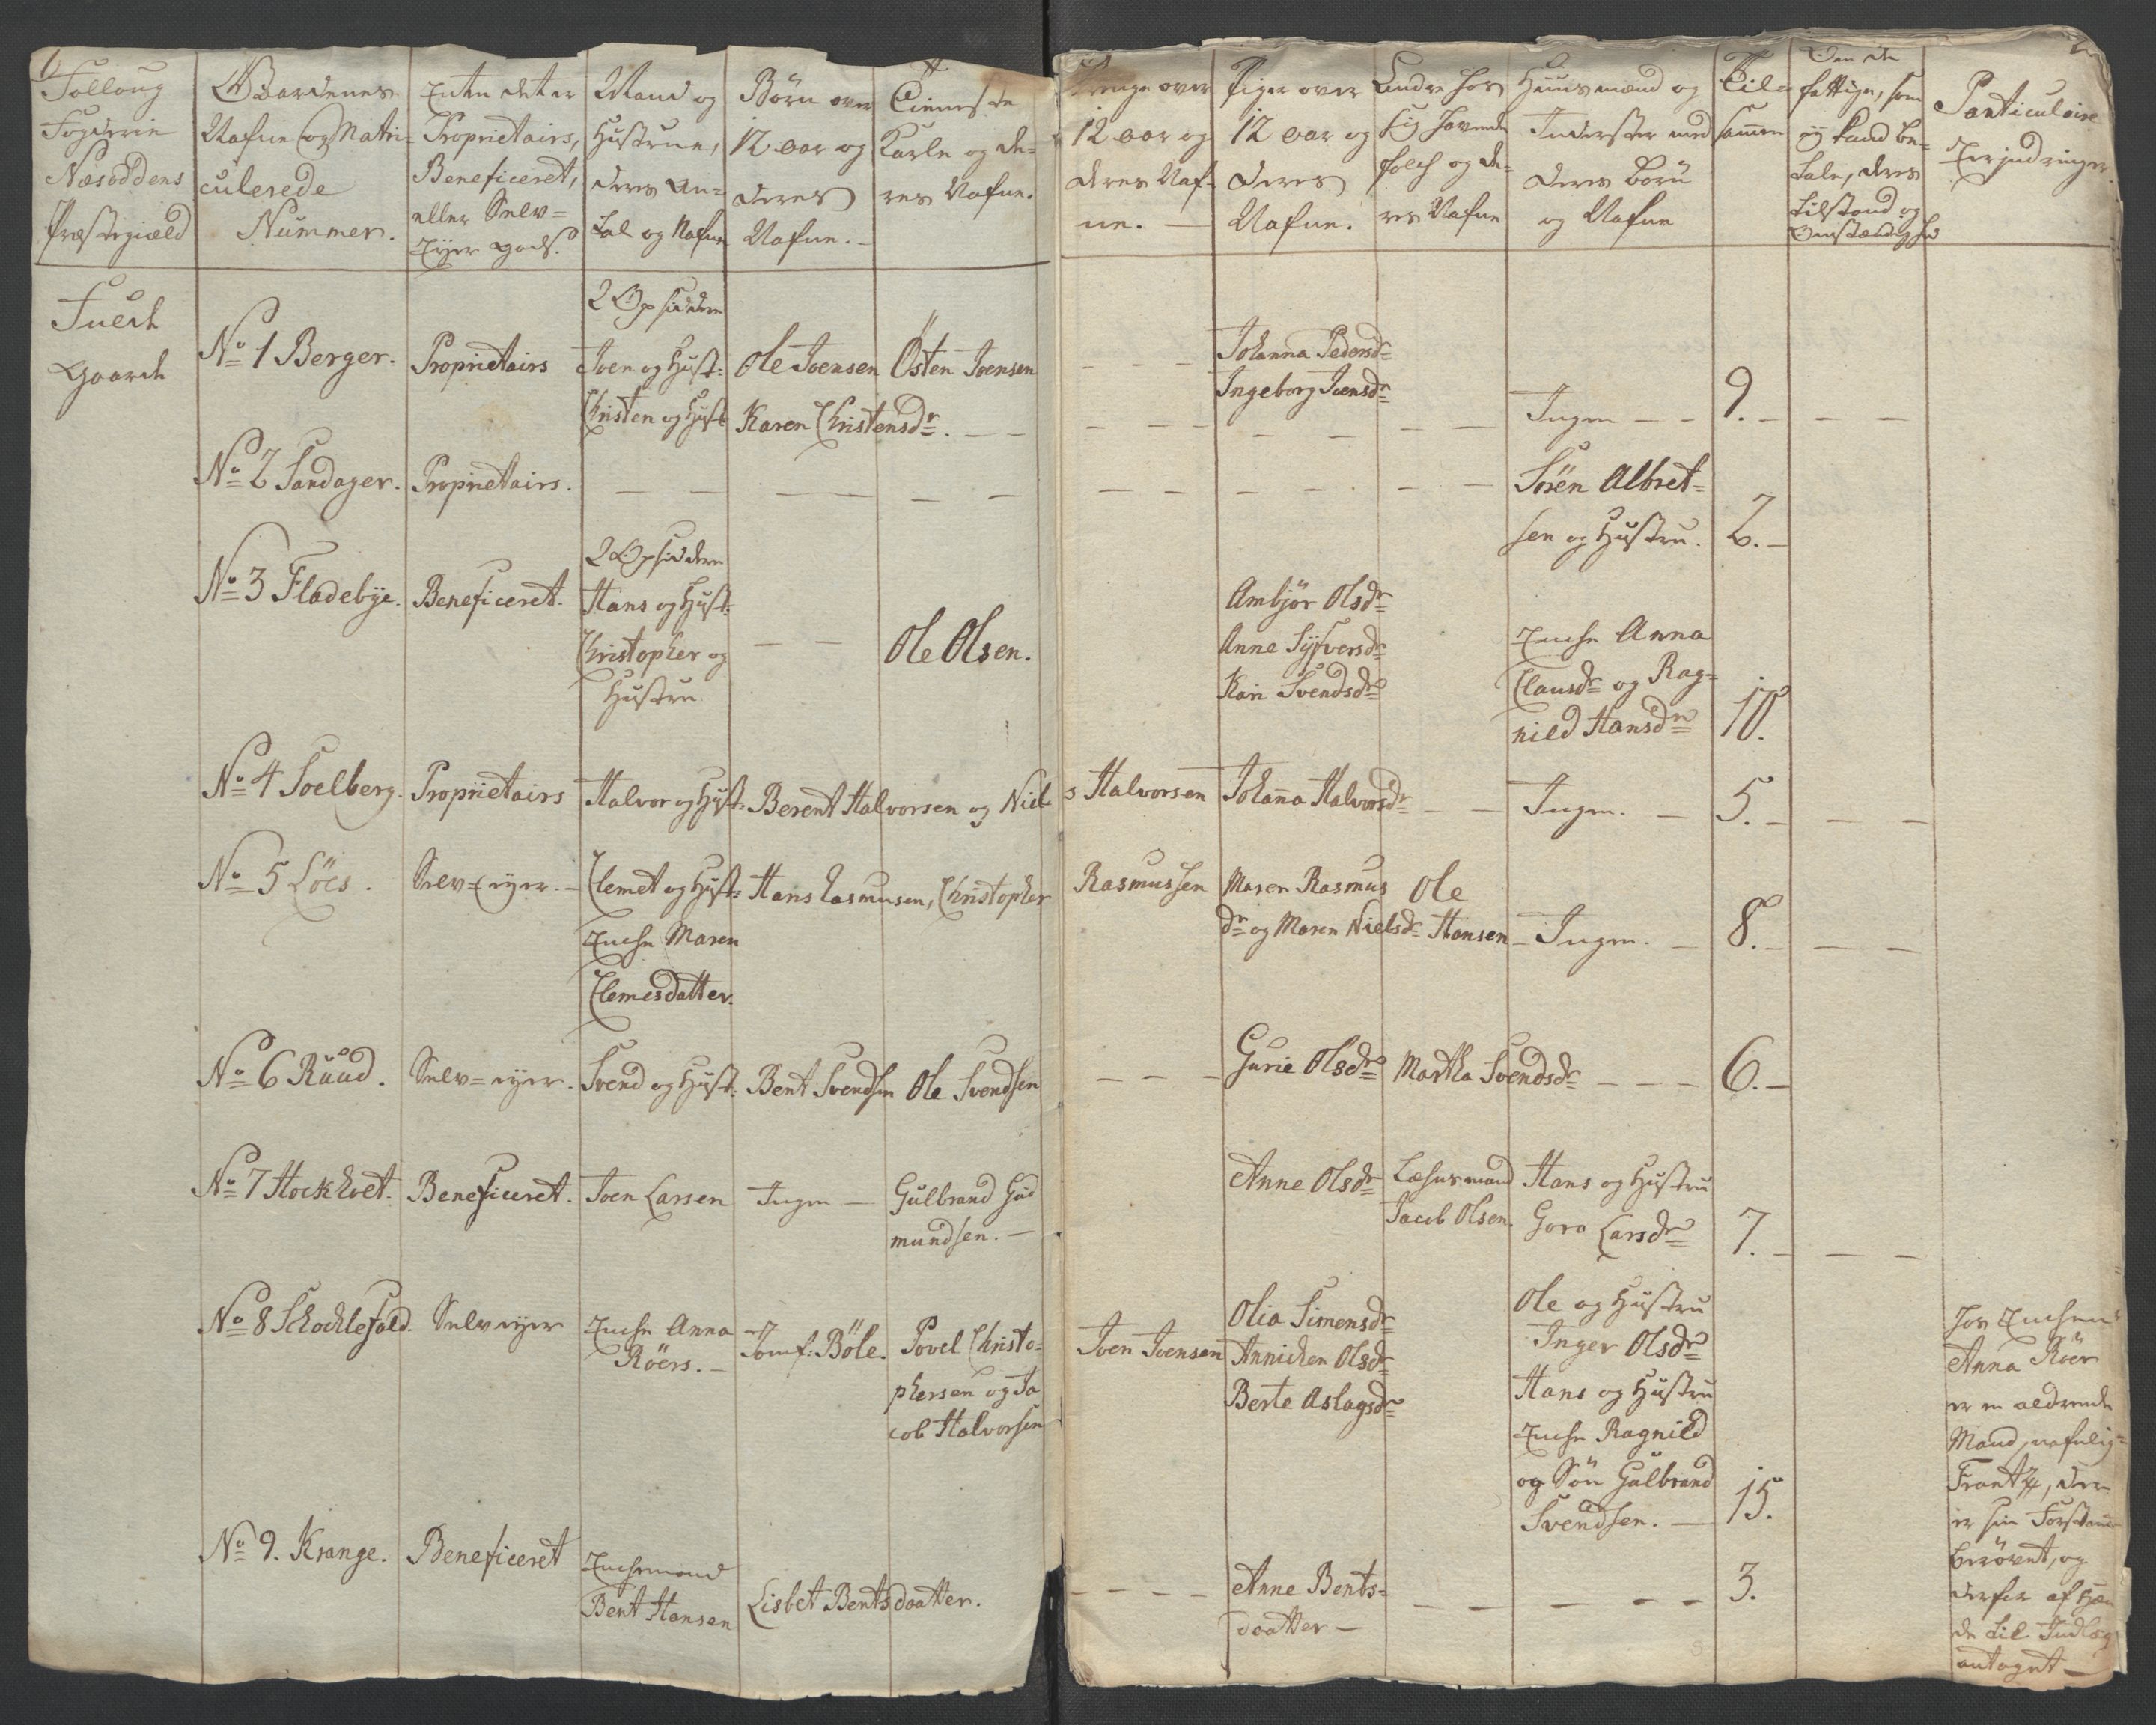 Folloug
Fogderie
Næsoddens
Præstegiæld
Gaardenes
Nafne og Matri-
culerede
Nummer.
Enten det er
Proprietairs,
Beneficeret,
eller Selv=
Eyer gods.
Mand og
Hustrue,
deres An-
tal og Nafne
Börn over
12 aar og
deres
Nafne. -
Tienneste
Karle og de-
res Nafne.
Drenge over
12 aar og
deres Naf-
ne. -
Piger over
12 aar og
deres
Nafne.
Andre hos
sig havende
folch og de-
res Nafne
Huusmænd og
Inderster med
deres börn
og Nafne
Til-
sammen
Om de
fattige, som
ey kand be-
tale, deres
tilstand og
Omstændighed
Particulaire
Erindringer.
Fuld
Gaarde
No 1 Berger. Proprietairs
2 Opsiddere
Joen og Hust:
Christen og Hust
Ole Joensen
Karen Christensdr. - -
Östen Joensen
Johanna Pedersdr
Ingeborg Joensdr
Ingen - - 9. - - -
No 2 Sandager. Proprietairs. - - - - - - - - - - - -
Sören Albret-
sen og Hustru. 2. -
No 3 Fladebye. Beneficeret.
2 Opsiddere
Hans og Hust:
Christopher og
Hustru
- -
Ole Olsen.
Ambjör Olsdr
Anne Syfversdr
Kari Svendsdr
Encke Anna
Clausdr og Rag-
nild Hansdr 10.
No 4 Soelberg. Proprietairs Halvor og Hust: Berent Halvorsen og Niel
s Halvorsen Johanna Halvorsdr - - Ingen. - 5. - - -
No 5 Löes. Selv=Eyer. - Clemet og Hust: Hans Rasmusen, Christopher
Encke Maren
Clemesdatter.
Rasmussen Maren Rasmus Ole
dr og Maren Nielsdr Hansen - Ingen. - 8. - - -
No 6 Ruud. Selv=eyer. Svend og Hust: Bent Svendsen Ole Svendsen
- - - Gurie Olsdr Martha Svendsdr - - - 6. -
No 7 Hockhvet. Beneficeret. Joen Larsen Ingen - Gulbrand Gud
mundsen. -
Anne Olsdr Læhnsmand Hans og Hustru
Jacob Olsen. Goro Larsdr 7. - - -
No 8 Schochlefald. Selveyer Encke Anna
Röers. -
Jomf: Böle. Povel Christo-
phersen og Ja
cob Halvorsen
Joen Joensen
Olia Simensdr
Annichen Olsdr
Berte Aslagsdr
Ole og Hustru
Inger Olsdr
Hans og Hustru
Encke Ragnild
og Sön Gulbrand
Svendsen. - 15.
Hos Encken
Anna Röer
er en aldrende
Mand, nafnlig-
Frantz, der
er sin Forstand
berövet, og
derfor af
de til Indlæg
antaget -
No 9. Krange. Beneficeret Enckemand
Bent Hansen
Lisbet Bentsdaatter.
- - - Anne Bents-
daatter -
- - - - - 3.